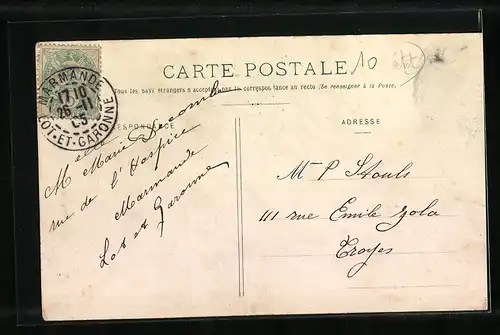 CARTE POSTALE
10
Tous les pays étrangers n'acceptent pas la correspondance au recto (Se renseigner à la Poste).
CORRESPONDANCE
ADRESSE
MARMANDE
17 10
26 -11
05
LOT-ET-GARONNE
Melle Marie Lacombe
rue de l'Hospice
Marmande
Lot et Garonne
Mr P Stouls
111 rue Emile Zola
Troyes